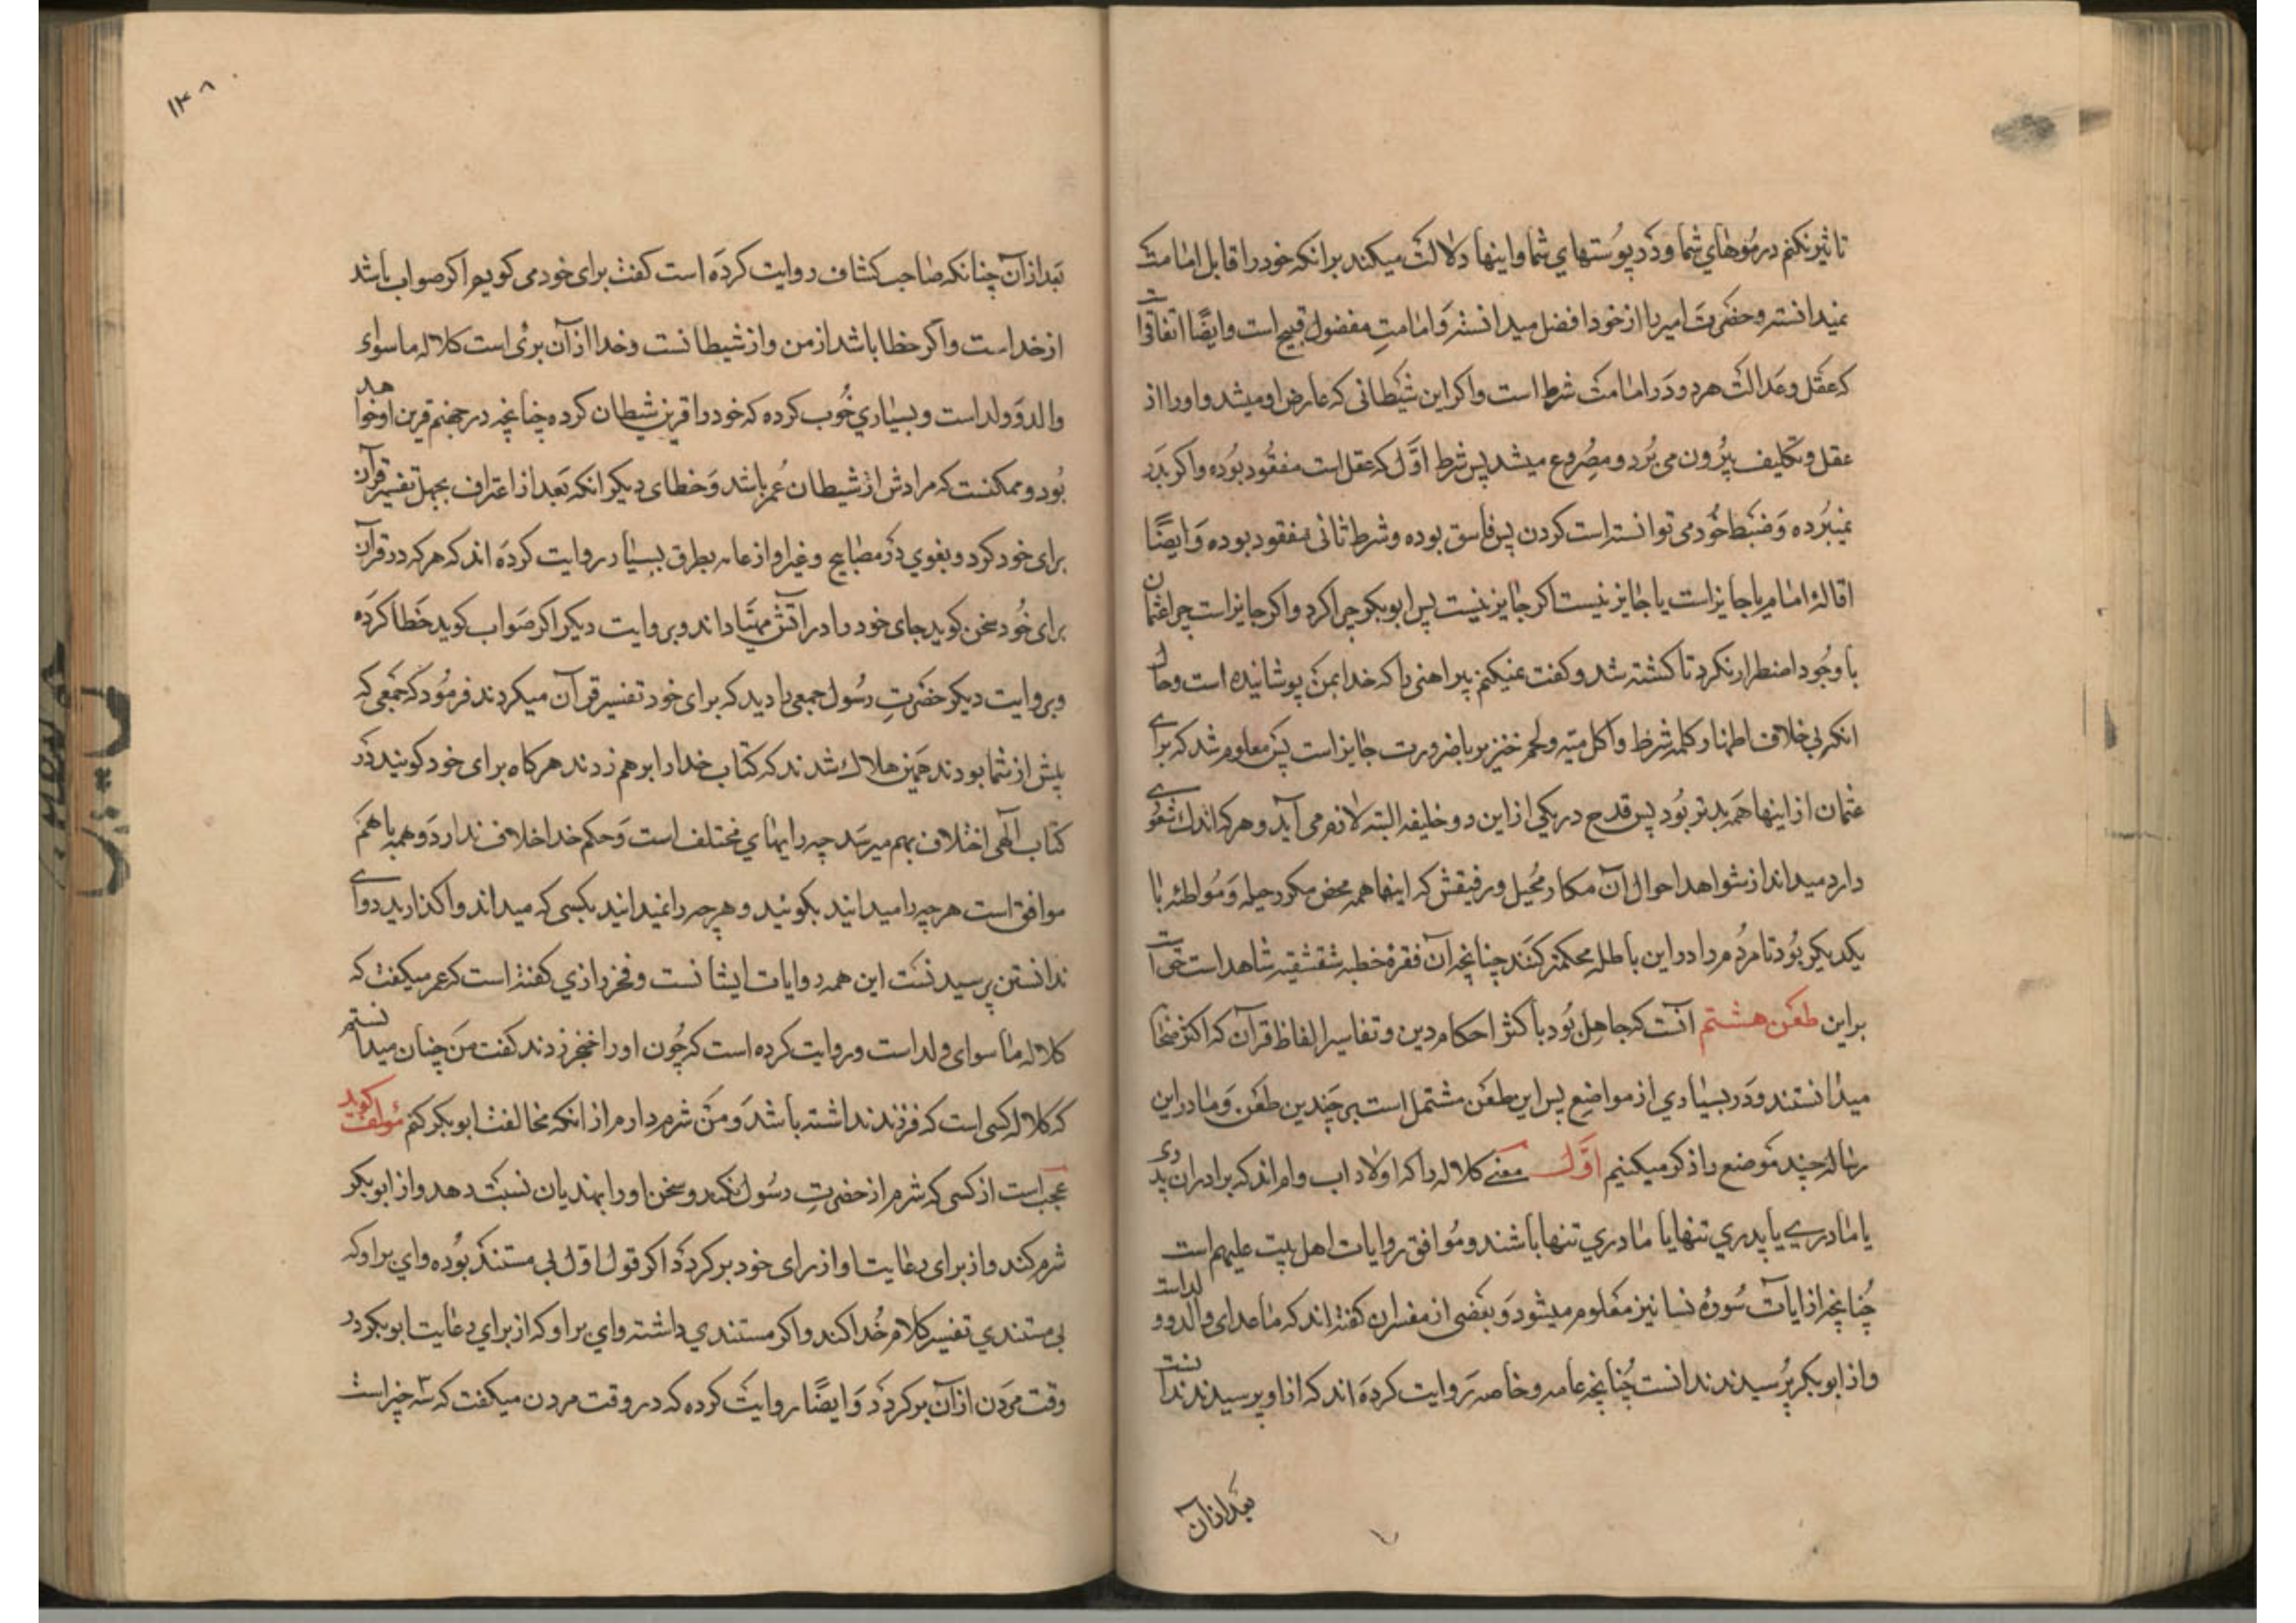 تاثیر نکنم در موهای شما و در پوستهای شما و اینها دلالت میکند برانکه خود را قابل امامت
نمیدانسته و حضرت امیر را از خود افضل میدانسته و امامتِ مفضول قبیح است و ایضًا اتفاقیست
که عقل و عدالت هر دو در امامت شرط است و اکر این شیطانی که عارض او میشد و او را از
عقل و تکلیف بیرون می برد و مصروع میشد پس شرط اوّل که عقل است مفقود بوده و اکر بدر
نمیبرده و ضبط خود می توانسته است کردن پس فاسق بوده و شرط ثانی مفقود بوده و ایضًا
اقالهٔ امام یا جایز است یا جایز نیست اکر جایز نیست پس ابوبکر چرا کرد و اکر جایز است چرا عثمان
با وجود اضطرار نکرد تا کشته شد و کفت نمیکنم پیراهنی را که خدا بمن پوشانیده است و حال
انکه بی خلاف اظهار کلمه شرط و اکل میته و لحم خنزیر با ضرورت جایز است پس معلوم شد که برای
عثمان از اینها همه بدتر بود پس قدح در یکی از این دو خلیفه البته لازم می آید و هر که اندک شعوری
دارد میداند از شواهد احوال آن مکار محیل و رفیقش که اینها همه محض مکر و حیله و مواطئه با
یکدیکر بود تا مردم را در این باطل محکمتر کنند چنانچه آن فقرهٔ خطبه شقشقیه شاهد است حتی آ
بر این طعن هشتم آنست که جاهل بود باکثر احکام دین و تفاسیر الفاظ قرآن که اکثر صحابه
میدانستند و در بسیاری از مواضع پس این طعن مشتمل است بر چندین طعن و ما در این
رساله چند موضع را ذکر میکنیم اوّل معنی کلاله را که اولاد اب و ام اند که برادران پدری
یا مادری یا پدری تنها یا مادری تنها باشند و موافق روایات اهل بیت علیهم است
چنانچه از ایات سورهٔ نسا نیز معلوم میشود و بعضی از مفسران کفته اند که ماعدای والد و ولد است
و از ابوبکر پرسیدند ندانست چنانچه عامه و خاصه روایت کرده اند که از او پرسیدند ندانست
بعد از آن
۱۳۸
بعد از آن چنانکه صاحب کشاف روایت کرده است کفت برای خود می کویم اکر صواب باشد
از خداست و اکر خطا باشد از من و از شیطانست و خدا از آن بری است کلاله ماسوای
والد و ولد است و بسیاری خوب کرده که خود را قرین شیطان کرده چنانچه در جهنم قرین او خواهد
بود و ممکنست که مرادش از شیطان عمر باشد و خطای دیکر انکه بعد از اعتراف بجهل تفسیر قرآن
برای خود کرد و بغوی در مصابیح و غیر او از عامه بطرق بسیار روایت کرده اند که هر که در قرآن
برای خود سخن کوید جای خود را در آتش مهیّا داند و بروایت دیکر اکر صواب کوید خطا کرده
و بروایت دیکر حضرتِ رسول جمعی را دید که برای خود تفسیر قرآن میکردند فرمود که جمعی که
پیش از شما بودند همین هلاک شدند که کتاب خدا را بر هم زدند هرکاه برای خود کویند در
کتاب الهی اختلاف بهم میرسد چه رایهای مختلف است و حکم خدا اختلاف ندارد و همه با هم
موافق است هر چه را میدانید بکوئید و هر چه را نمیدانید بکسی که میداند واکذارید دوای
ندانستن پرسیدنست این همه روایات ایشانست و فخر رازی کفته است که عمر میکفت که
کلاله ما سوای ولد است و روایت کرده است که چون او را خنجر زدند کفت من چنان میدانستم
که کلاله کسی است که فرزند نداشته باشد و من شرم دارم از انکه مخالفت ابوبکر کنم مؤلف کوید
عجب است از کسی که شرم از حضرتِ رسول نکند و سخن او را بهذیان نسبت دهد و از ابوبکر
شرم کند و از برای رعایت او از رای خود برکردد اکر قول اوّل بی مستند بوده وای بر او که
بی مستندی تفسیر کلام خدا کند و اکر مستندی داشته وای بر او که از برای رعایت ابوبکر در
وقت مردن از آن برکردد و ایضًا روایت کرده که در وقت مردن میکفت که سه چیز است